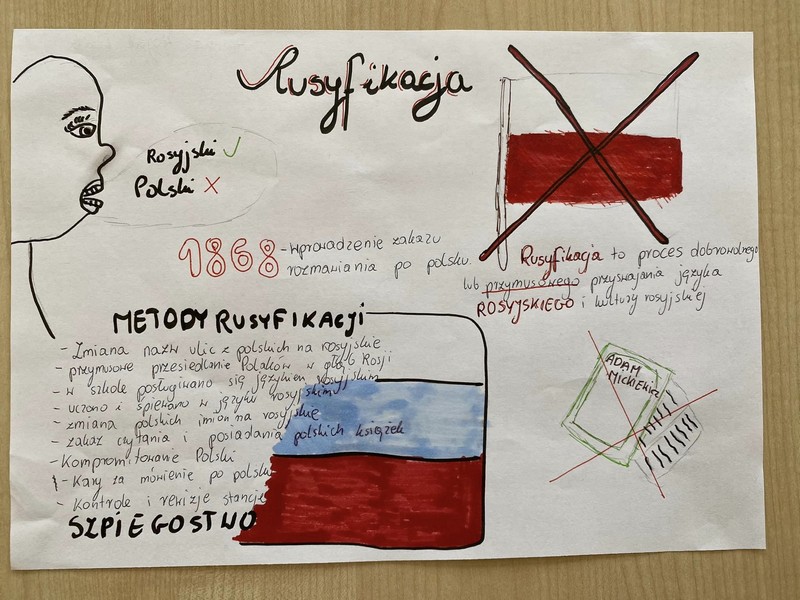 Rusyfikacja
Rosyjski ✓
Polski X
1868 - wprowadzenie zakazu
rozmawiania po polsku.
Rusyfikacja to proces dobrowolnego
lub przymusowego przyswajania języka
ROSYJSKIEGO i kultury rosyjskiej
METODY RUSYFIKACJI
- Zmiana nazw ulic z polskich na rosyjskie
- przymusowe przesiedlanie Polaków w głąb Rosji
- w szkole posługiwano się językiem rosyjskim
- uczono i śpiewano w języku rosyjskim
- zmiana polskich imion na rosyjskie
- zakaz czytania i posiadania polskich książek
- Kompromitowanie Polski
- Kary za mówienie po polsku
- Kontrole i rewizje stancje
SZPIEGOSTWO
ADAM
MICKIEWICZ